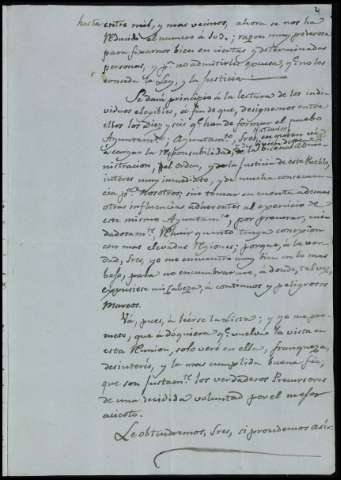 4
hasta entre mil, y mas vecinos, ahora se nos ha
reducido el numero à 103; razon muy poderosa
para fixarnos bien en ciertas y determinadas
personas, y no admitirles escusa, q.e no les
conceda la Ley, y la Justicia.
Se dará principio à la lectura de los indi-
viduos elegibles, à fin de que, designemos entre
ellos los diez y seis q.e han de formar el nuevo
Ayuntam.to, Ayuntam.to, Sres, en quien vá
à cargar la responsabilidad de la buena admi-
nistracion, del orden, y de la justicia de este Pueblo,
interes muy inmediato, y de mucha consecuen-
cia p.a Nosotros; sin tomar en cuenta ademas
otras influencias adherentes al egercicio de
este mismo Ayuntam.to, por procurar, cui-
dadosam.te, huir quanto tenga conexion
con mas elevadas Regiones; porque, à la ver-
dad, Sres, yo me encuentro muy bien en lo mas
bajo, para no encumbrarme, à donde, tal vez,
expusiera mi cabeza, à continuos y peligrosos
Mareos.
Vá, pues, à leerse la Lista; y yo me pro-
meto, que à do quiera q.e vuelva la vista en
esta Reunion, solo veré en ella, franqueza,
desinterés, y la mas cumplida buena fé,
que son justam.te los verdaderos Precursores
de una decidida voluntad por el mejor
acierto.
Le obtendremos, Sres, si procedemos asi.